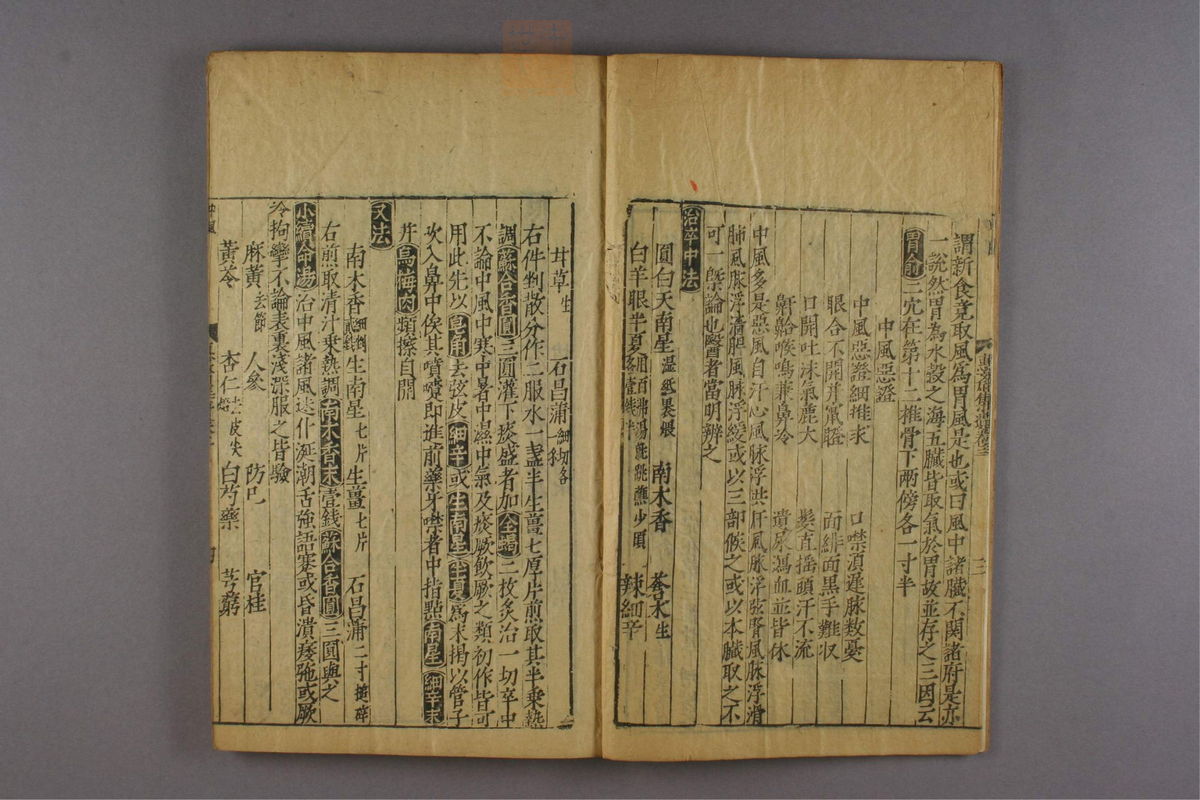 謂新食竟取風爲胃風是也或曰風中諸臟不關諸府是亦
一說然胃為水穀之海五臟皆取氣於胃故並存之三因云
胃俞二穴在第十二椎骨下兩傍各一寸半
中風惡證
中風惡證細推求 口噤項遲脉数憂
眼合不開并鼾睡 面緋面黑手難収
口開吐沫氣麁大 髮直揺頭汗不流
鼾齁喉鳴兼鼻冷 遺尿瀉血並皆休
中風多是惡風自汗心風脉浮洪肝風脉浮弦腎風脉浮滑
肺風脉浮濇脾風脉浮緩或以三部候之或以本臟取之不
可一槩論也醫者當明辨之
治卒中法
圓白天南星濕紙裹煨 南木香 蒼朮生
白羊眼半夏用百沸湯就銚蘸少頃各壹錢半 辣細辛
甘草生 石昌蒲細切各
右件剉散分作二服水一盞半生薑七厚片煎取其半乗熱
調蘇合香圓三圓灌下痰盛者加全蝎二枚炙治一切卒中
不論中風中寒中暑中濕中氣及痰厥飲厥之類初作皆可
用此先以皂角去弦皮細辛或生南星半夏爲末揭以管子
吹入鼻中俟其噴嚏即進前藥牙噤者中指點南星細辛末
并烏梅肉頻擦自開
又法
南木香細剉貳錢 生南星七片 生薑七片 石昌蒲二寸搥碎
右煎取清汁乗熱調南木香末壹錢蘇合香圓三圓與之
小續命湯治中風諸風迷仆涎潮舌強語蹇或昏潰痿弛或厥
冷拘攣不論表裏淺深服之皆驗
麻黃去節 人參 防己 官桂
黃芩 杏仁 白芍藥 芎藭